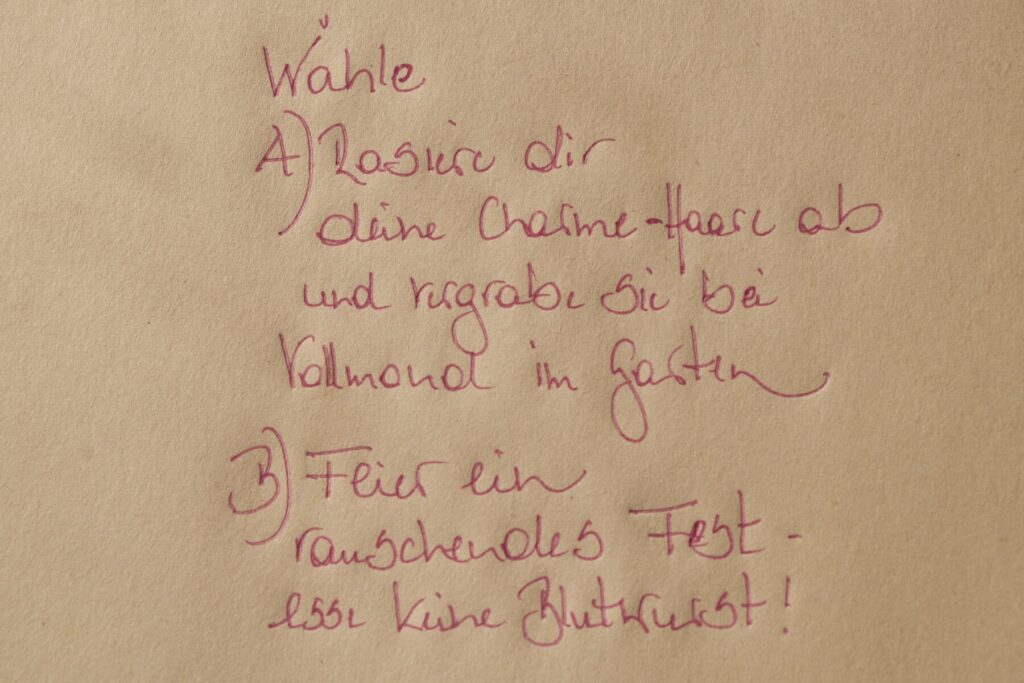 Wähle
A) Rasiere dir
deine Charme-Haare ab
und vergrabe sie bei
Vollmond im Garten
B) Feier ein
rauschendes Fest -
esse keine Blutwurst!